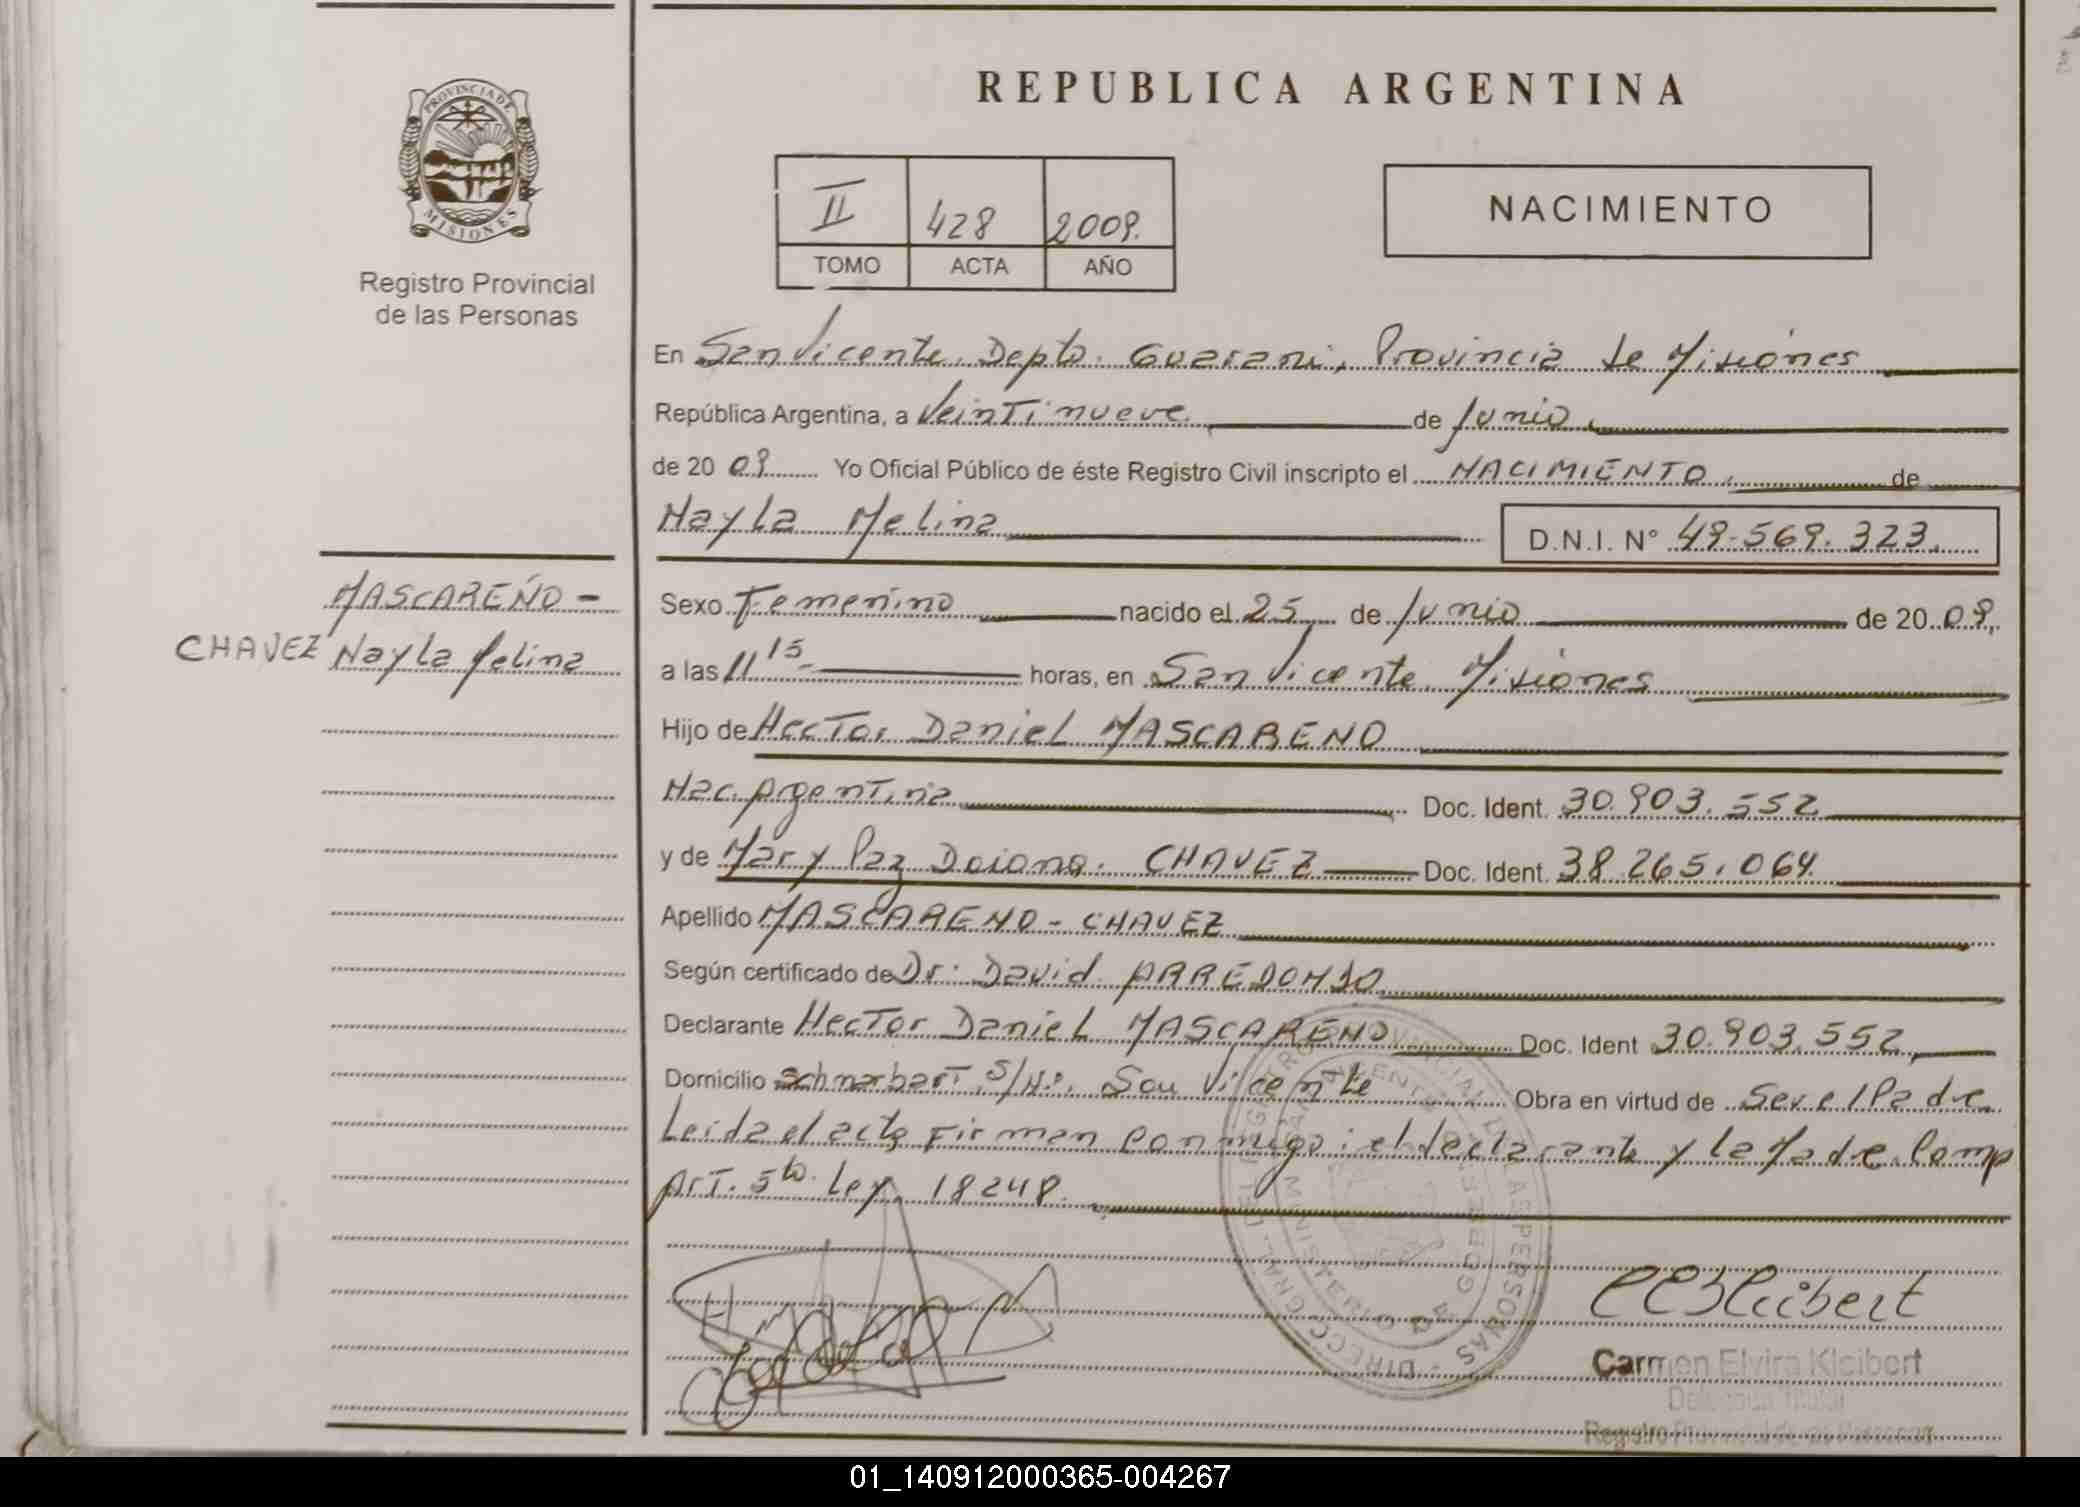 REPUBLICA ARGENTINA
PROVINCIA DE
MISIONES
Registro Provincial
de las Personas
II 428 2009.
TOMO ACTA AÑO
NACIMIENTO
En San Vicente, Depto. Guarani, Provincia de Misiones
República Argentina, a Veintinueve de Junio
de 20 09 Yo Oficial Público de éste Registro Civil inscripto el NACIMIENTO, de
Nayla Melina
D.N.I. N° 49.569.323.
MASCAREÑO -
CHAVEZ Nayla Melina
Sexo Femenino nacido el 25 de Junio de 20 09,
a las 11 15 horas, en San Vicente, Misiones
Hijo de Hector Daniel MASCARENO
Nac. Argentina Doc. Ident. 30.903.552
y de Mary Paz Daiana. CHAVEZ Doc. Ident. 38.265.064.
Apellido MASCARENO - CHAVEZ
Según certificado de Dr. David ARREDONDO
Declarante Hector Daniel MASCARENO Doc. Ident 30.903.552,
Domicilio S/Nº. San Vicente Obra en virtud de Ser el Padre.
Leida el acta Firman conmigo: el declarante y la Madre. Comp
Art. 5to. Ley 18248.
DIRECC. GRAL. DEL REGISTRO PROVINCIAL DE LAS PERSONAS
MINISTERIO DE GOBIERNO
Carmen Elvira Kleibert
Delegada Titular
Registro Provincial de las Personas
01_140912000365-004267